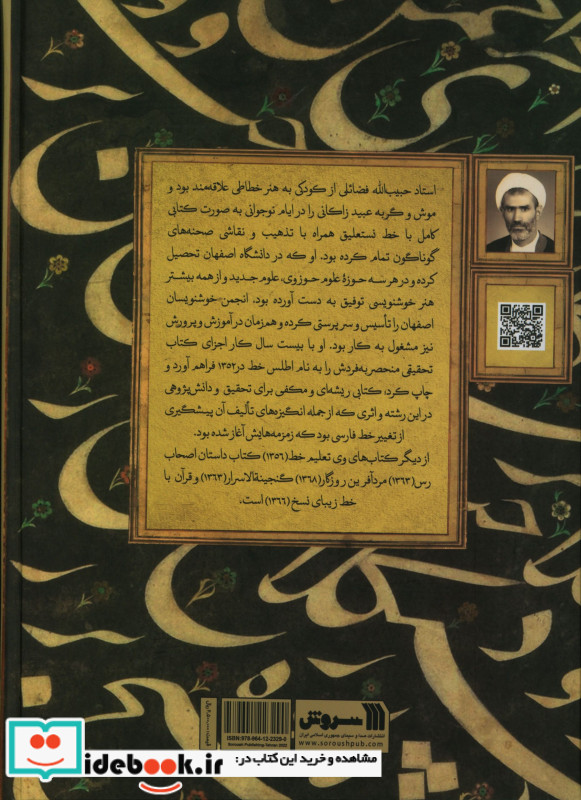 استاد حبیب‌الله فضائلی از کودکی به هنر خطاطی علاقه‌مند بود و
موش و گربه عبید زاکانی را در ایام نوجوانی به صورت کتابی
کامل با خط نستعلیق همراه با تذهیب و نقاشی صحنه‌های
گوناگون تمام کرده بود. او که در دانشگاه اصفهان تحصیل
کرده و در هر سه حوزهٔ علوم حوزوی، علوم جدید و از همه بیشتر
هنر خوشنویسی توفیق به دست آورده بود، انجمن خوشنویسان
اصفهان را تأسیس و سرپرستی کرده و همزمان در آموزش و پرورش
نیز مشغول به کار بود. او با بیست سال کار اجزای کتاب
تحقیقی منحصربه‌فردش را به نام اطلس خط در ۱۳۵۲ فراهم آورد و
چاپ کرد، کتابی ریشه‌ای و مکفی برای تحقیق و دانش‌پژوهی
در این رشته و اثری که از جمله انگیزه‌های تألیف آن پیشگیری
از تغییر خط فارسی بود که زمزمه‌هایش آغاز شده بود.
از دیگر کتاب‌های وی تعلیم خط (۱۳۵۶) کتاب داستان اصحاب
رس (۱۳۶۳) مردآفرین روزگار (۱۳۶۸) گنجینة‌الاسرار (۱۳۶۳) و قرآن با
خط زیبای نسخ (۱۳۶۶) است.
سروش
انتشارات صدا و سیمای جمهوری اسلامی ایران
www.soroushpub.com
iranidebook.ir
مشاهده و خرید این کتاب در: